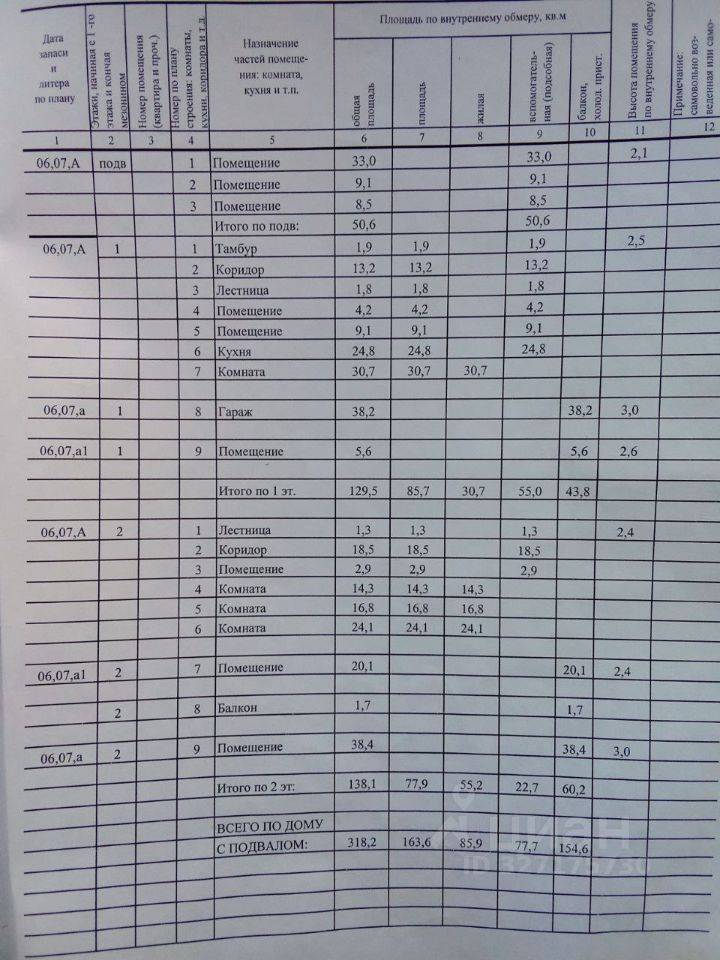 Дата записи и литера по плану | Этажи, начиная с 1-го этажа и кончая мезонином | Номер помещения (квартира и проч.) | Номер по плану строения: комнаты, кухни, коридора и т.д. | Назначение частей помещения: комната, кухня и т.п. | Площадь по внутреннему обмеру, кв.м | Высота помещения по внутреннему обмеру | Примечание: самовольно возведенная или само-
общая площадь | площадь | жилая | вспомогательная (подсобная) | балкон, холод. прист.
1 2 3 4 5 6 7 8 9 10 11 12
06,07,А подв 1 Помещение 33,0 33,0 2,1
2 Помещение 9,1 9,1
3 Помещение 8,5 8,5
Итого по подв: 50,6 50,6
06,07,А 1 1 Тамбур 1,9 1,9 1,9 2,5
2 Коридор 13,2 13,2 13,2
3 Лестница 1,8 1,8 1,8
4 Помещение 4,2 4,2 4,2
5 Помещение 9,1 9,1 9,1
6 Кухня 24,8 24,8 24,8
7 Комната 30,7 30,7 30,7
06,07,а 1 8 Гараж 38,2 38,2 3,0
06,07,а1 1 9 Помещение 5,6 5,6 2,6
Итого по 1 эт. 129,5 85,7 30,7 55,0 43,8
06,07,А 2 1 Лестница 1,3 1,3 1,3 2,4
2 Коридор 18,5 18,5 18,5
3 Помещение 2,9 2,9 2,9
4 Комната 14,3 14,3 14,3
5 Комната 16,8 16,8 16,8
6 Комната 24,1 24,1 24,1
06,07,а1 2 7 Помещение 20,1 20,1 2,4
2 8 Балкон 1,7 1,7
06,07,а 2 9 Помещение 38,4 38,4 3,0
Итого по 2 эт: 138,1 77,9 55,2 22,7 60,2
ВСЕГО ПО ДОМУ
С ПОДВАЛОМ: 318,2 163,6 85,9 77,7 154,6
циан